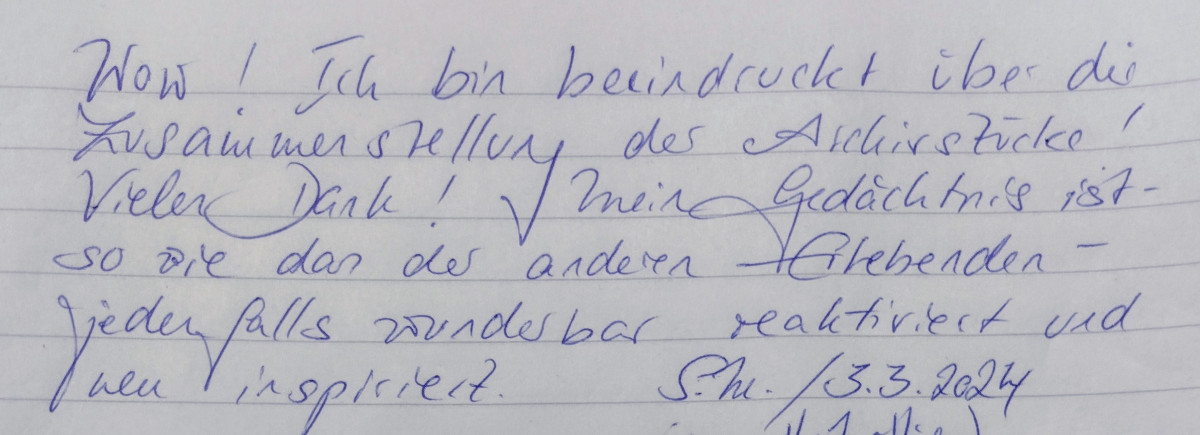 Wow! Ich bin beeindruckt über die
Zusammenstellung der Archivstücke!
Vielen Dank! Mein Gedächtnis ist -
so wie das der anderen Erlebenden -
jedenfalls wunderbar reaktiviert und
neu inspiriert. S.M. / 3.3.2024